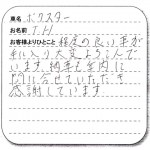 車名 ボクスター
お名前 T.H
お客様よりひとこと 程度の良い車が
手に入り大変よろこんで
います。納車も案内に
間に合せていただき
感謝しています。